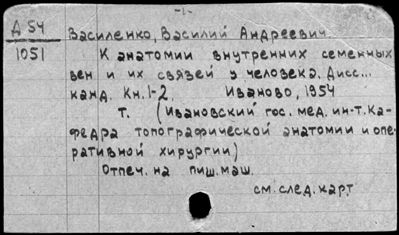 -1-
Д 54
1051
Василенко, Василий Андреевич
К анатомии внутренних семенных
вен и их связей у человека. Дисс...
канд. Кн. 1-2. Иваново, 1954
т. (Ивановский гос. мед. ин-т. Ка-
федра топографической анатомии и опе-
ративной хирургии)
Отпеч. на пиш. маш.
см. след. карт